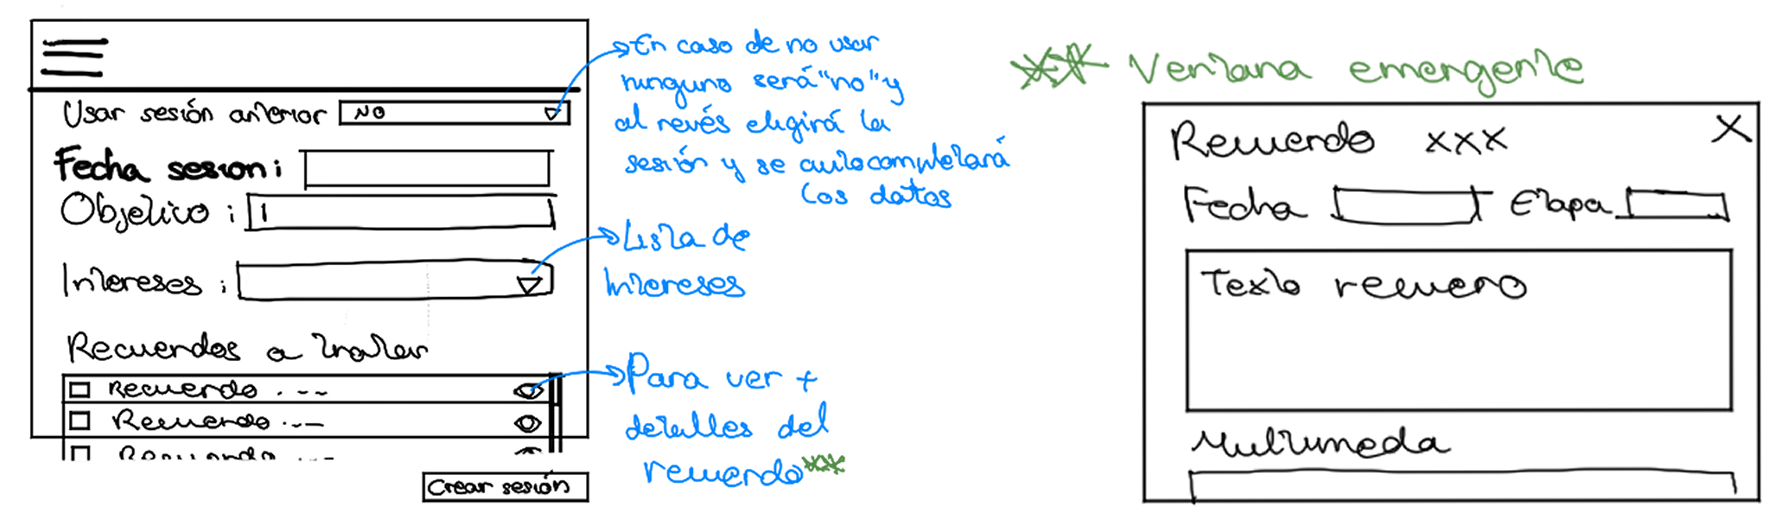 Usar sesión anterior NO
Fecha sesion:
Objetivo :
Intereses :
Recuerdos a tratar
Recuerdo . --
Recuerdo . --
Recuerdo
Crear sesión
En caso de no usar
ninguno será "no" y
al revés eligirá la
sesión y se autocompletará
los datos
Lista de
Intereses
Para ver +
detalles del
recuerdo**
** Ventana emergente
Recuerdo xxx X
Fecha Etapa
Texto recuero
Multimeda